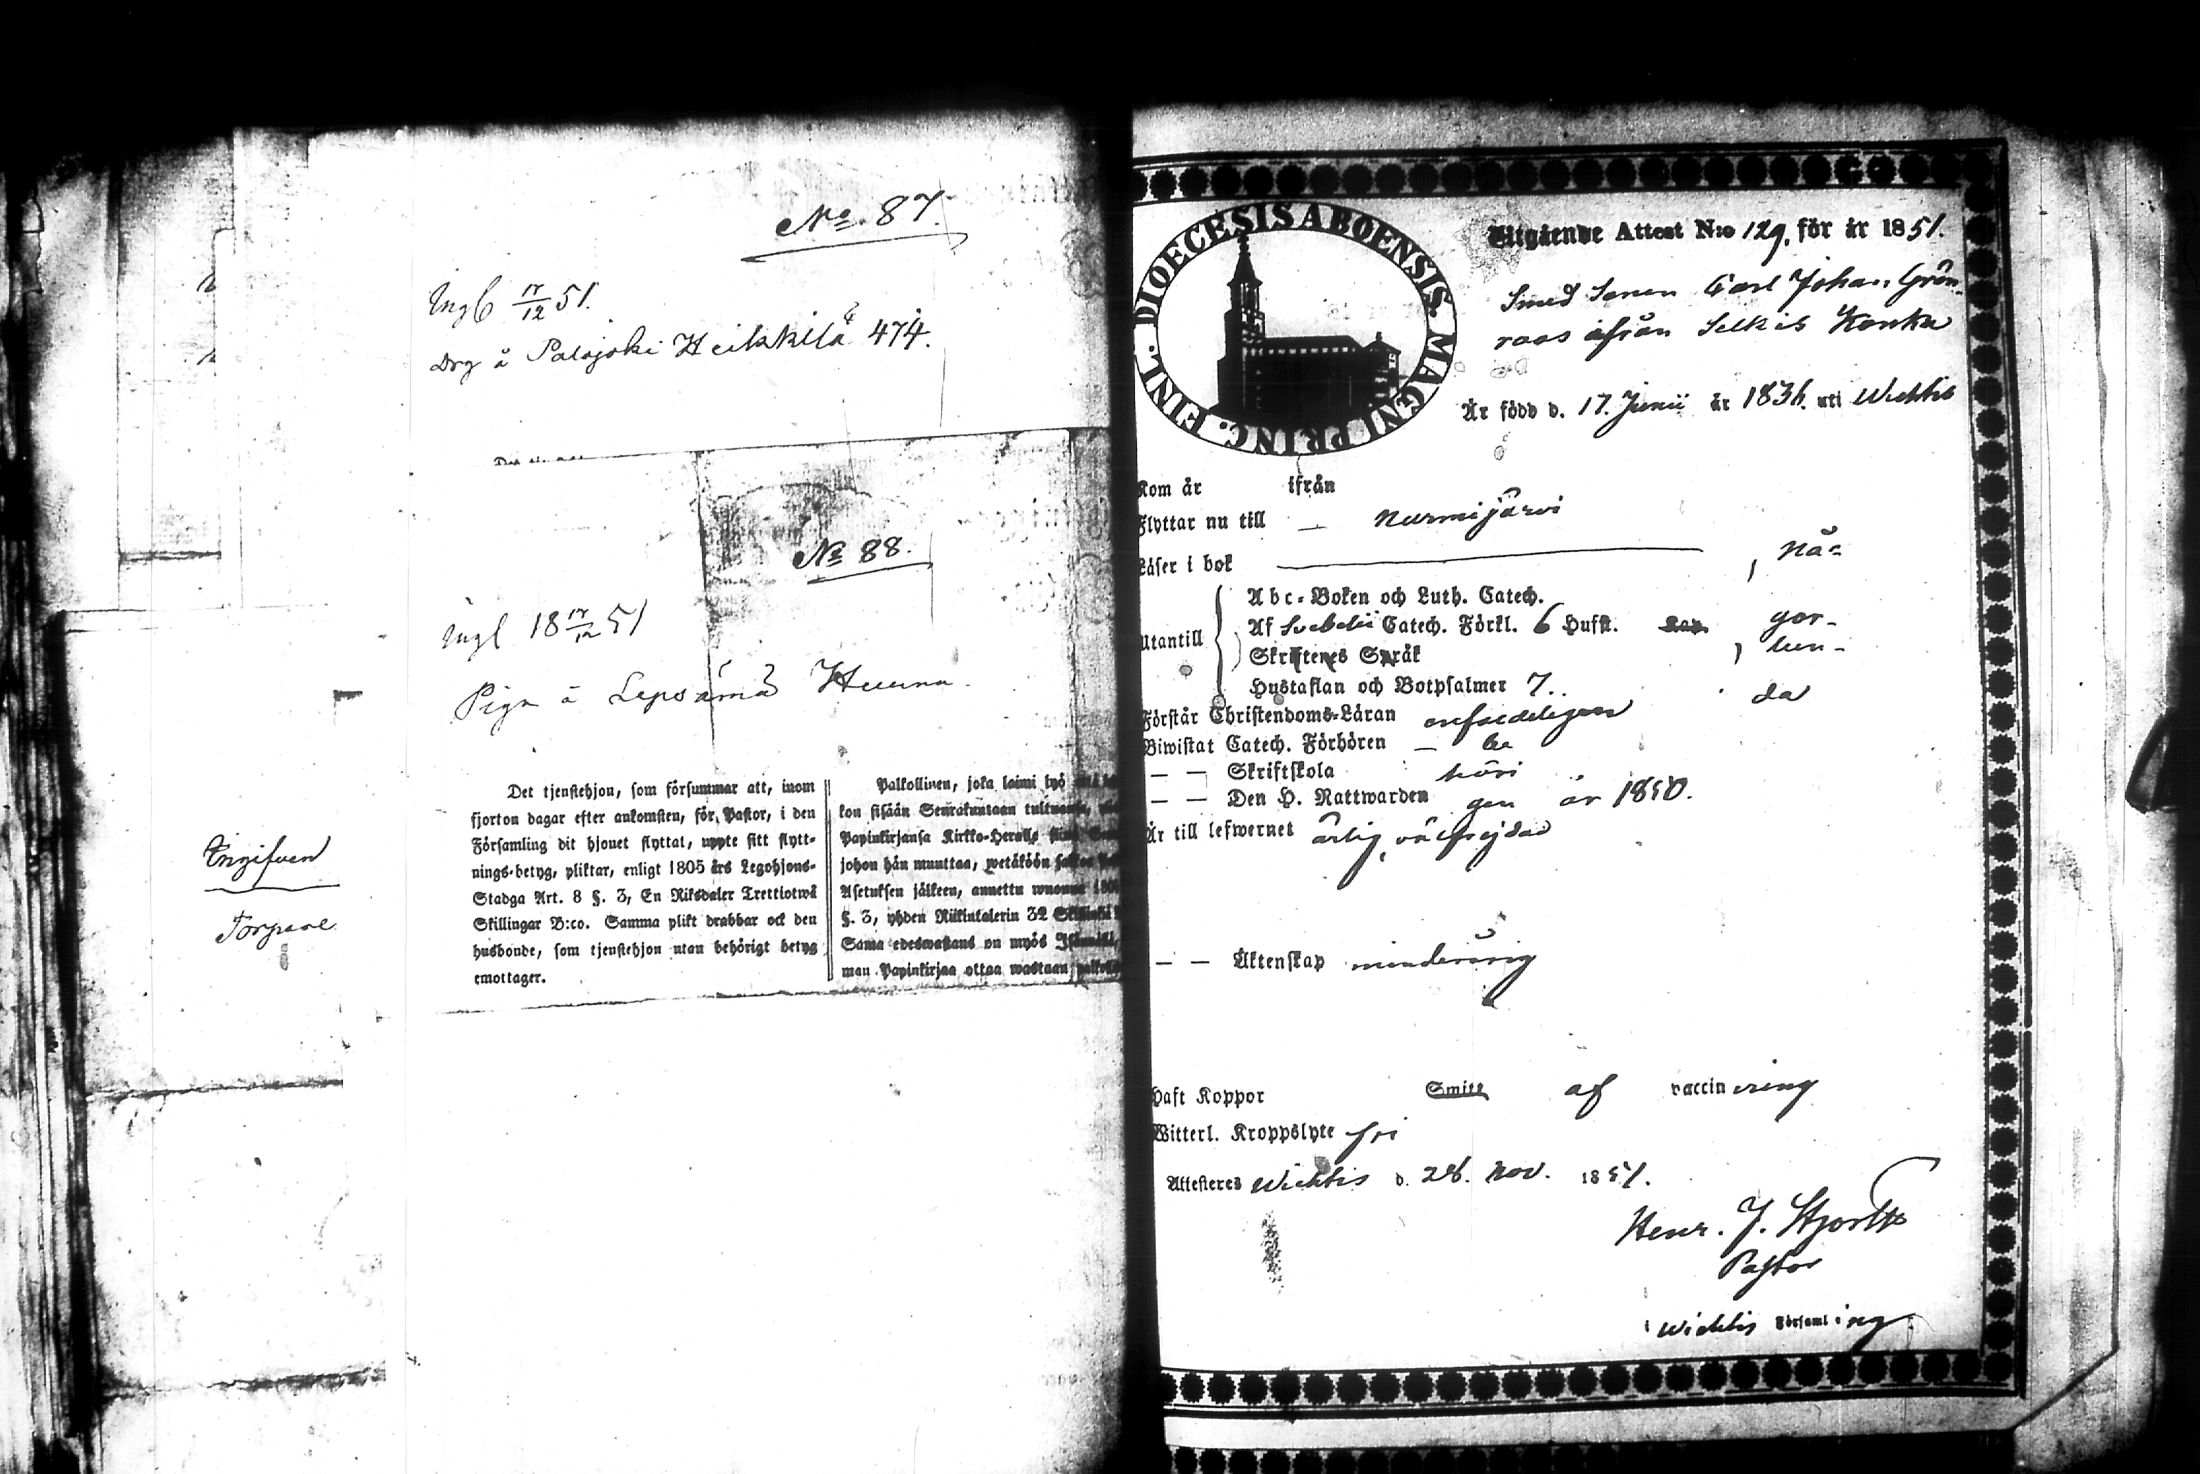 No. 87.
Ingl 17/12 51.
Drg å Palojoki Heikkilä 474.
No 88.
Ingl 18 17/12 51
Pign å Lepsämä
Det tjenstehjon, som försummar att, inom
fjorton dagar efter ankomsten, för Pastor, i den
Församling dit hjonet flyttat, uppte sitt flytt-
nings-betyg, pliktar, enligt 1805 års Legohjons-
Stadga Art. 8 §. 3, En Riksdaler Trettiotwå
Skillingar B:co. Samma plikt drabbar ock den
husbonde, som tjenstehjon utan behörigt betyg
emottager.
Palkollinen, joka laimi lyö
kon sisään Seurakuntaan tultuansa,
Papinkirjansa Kirkko-Herralle
johon hän muuttaa, wetäköön sakkoa
Asetuksen jälkeen, annettu wuonna 180
§. 3, yhden Riikintalerin 32 Skillinki
Sama edeswastaus on myös Isännällä,
man Papinkirjaa ottaa wastaan palkol
DIOECESIS ABOENSIS. MAGNI PRINC. FINL.
Utgående Attest N:o 129, för år 1851.
Smed Sonen Carl Johan Grön-
roos ifrån Selkis Konka
Är född d. 17. Junii år 1836. uti Wichtis
Kom år ifrån
Flyttar nu till — Nurmijärvi
Läser i bok , nå-
Utantill
Abc-Boken och Luth. Catech.
Af Svebelii Catech. Förkl. 6 Hufst. gor-
Skriftenes Språk , lun-
Hustaflan och Botpsalmer 7. da
Förstår Christendoms-Läran
Biwistat Catech. Förhören — be
— — Skriftskola höri
— — Den H. Nattwarden gen år 1850.
Är till lefwernet ärlig, välfrejdad
— — Äktenskap minderårig
Haft Koppor Smitt af vaccinering
Witterl. Kroppslyte fri
Attesteres Wichtis d. 28. Nov. 1851.
Henr. J. Hjorth
Pastor
i Wichtis Församling